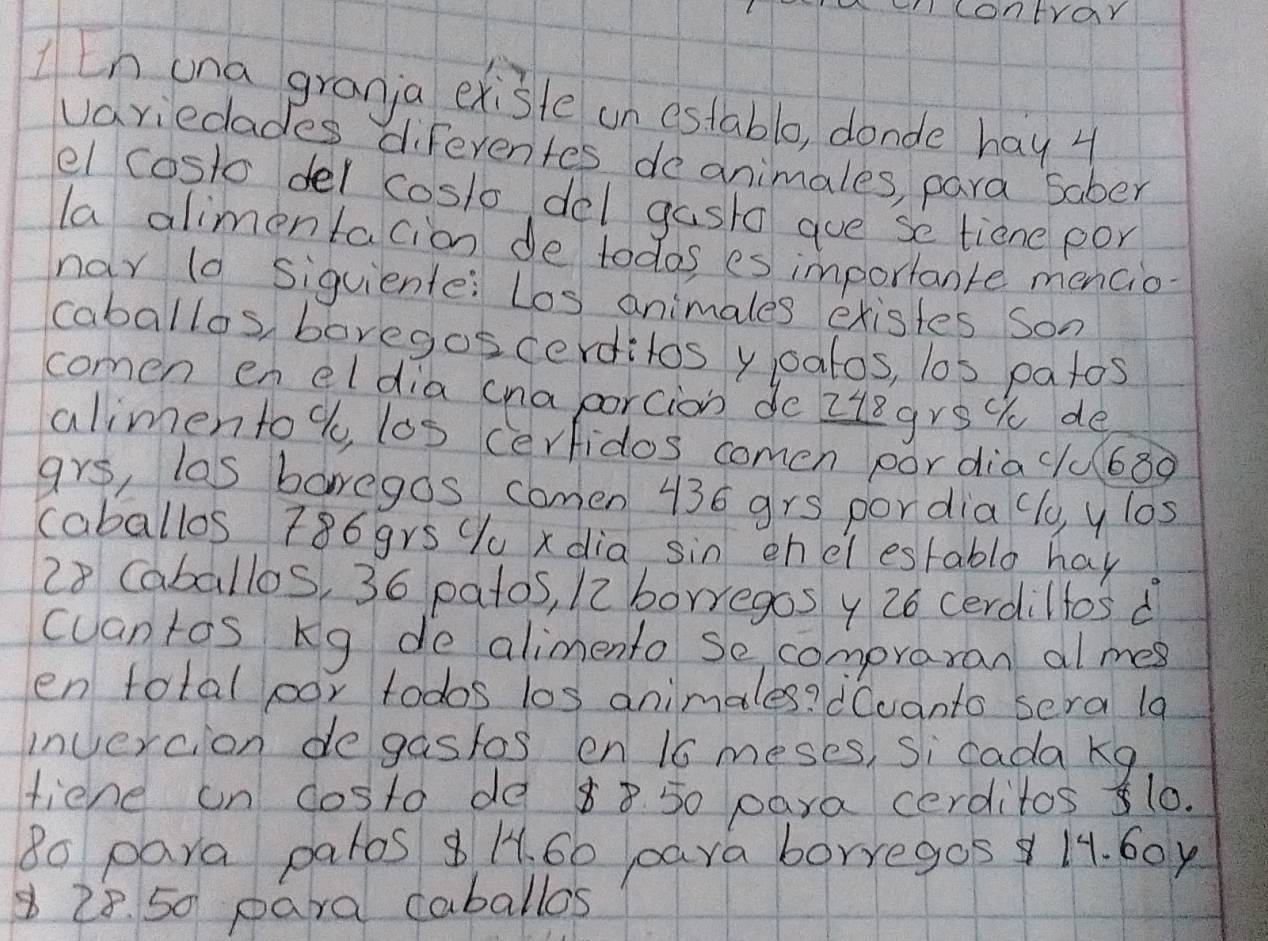 contrar
1 En una granja existe un establo, donde hay 4
variedades diferentes de animales, para saber
el costo del costo del gasto que se tiene por
la alimentacion de todos es importante mencio-
nar lo siguiente: Los animales existes son
caballos, boregos cerditos y patos, los patos
comen en el dia una porcion de 248 grs c/u de
alimento c/u, los cerfidos comen por dia c/u 680
grs, los borregos comen 436 grs por dia c/u, y los
caballos 786 grs c/u x dia sin en el establo hay
28 caballos, 36 patos, 12 borregos y 26 cerdiltos ¿
cuantos kg de alimento se compraran al mes
en total por todos los animales? ¿Cuanto sera la
invercion de gastos en 16 meses, si cada kg
tiene un costo de $8.50 para cerditos $10.
80 para patos $ para borregos $14.60 y
$28.50 para caballos